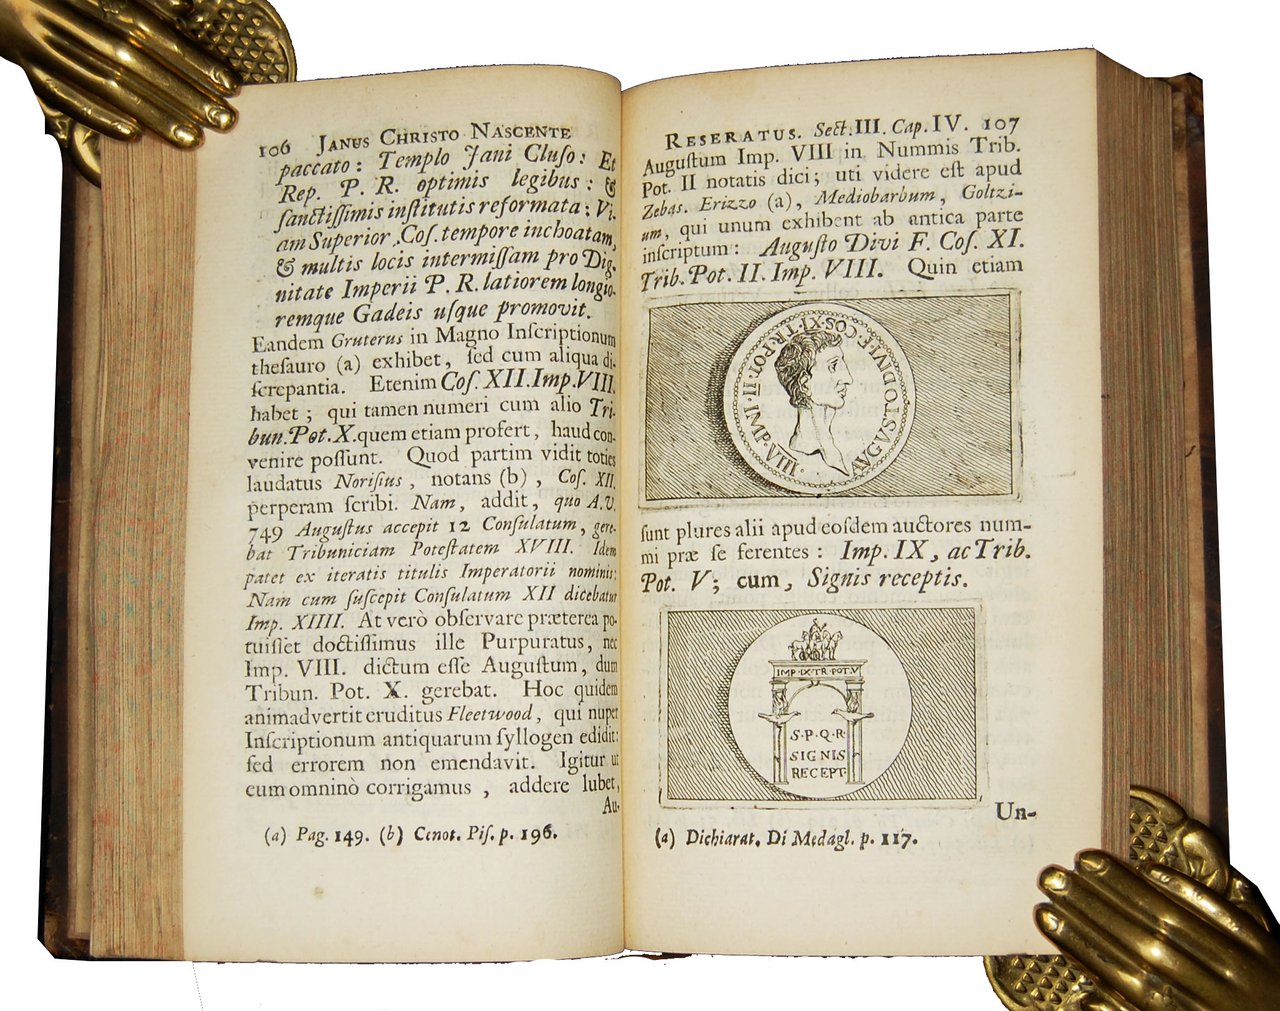 106 JANUS CHRISTO NASCENTE
paccato: Templo Jani Cluso: Et
Rep. P. R. optimis legibus: &
ſanctiſſimis inſtitutis reformata: Vi-
am Superior. Coſ. tempore inchoatam,
& multis locis intermiſſam pro Dig-
nitate Imperii P. R. latiorem longio-
remque Gadeis uſque promovit.
Eandem Gruterus in Magno Inſcriptionum
theſauro (a) exhibet, ſed cum aliqua di-
ſcrepantia. Etenim Coſ. XII. Imp. VIII.
habet; qui tamen numeri cum alio Tri-
bun. Pot. X. quem etiam profert, haud con-
venire poſſunt. Quod partim vidit toties
laudatus Noriſius, notans (b), Coſ. XII.
perperam ſcribi. Nam, addit, quo A. V.
749 Auguſtus accepit 12 Conſulatum, gere-
bat Tribuniciam Poteſtatem XVIII. Idem
patet ex iteratis titulis Imperatorii nominis:
Nam cum ſuſcepit Conſulatum XII dicebatur
Imp. XIIII. At verò obſervare præterea po-
tuiſſet doctiſſimus ille Purpuratus, nec
Imp. VIII. dictum eſſe Auguſtum, dum
Tribun. Pot. X. gerebat. Hoc quidem
animadvertit eruditus Fleetwood, qui nuper
Inſcriptionum antiquarum ſyllogen edidit:
ſed errorem non emendavit. Igitur ut
eum omninò corrigamus, addere lubet,
Au-
(a) Pag. 149. (b) Cenot. Piſ. p. 196.
RESERATUS. Sect. III. Cap. IV. 107
Auguſtum Imp. VIII in Nummis Trib.
Pot. II notatis dici; uti videre eſt apud
Zebas. Erizzo (a), Mediobarbum, Goltzi-
um, qui unum exhibent ab antica parte
inſcriptum: Auguſto Divi F. Coſ. XI.
Trib. Pot. II. Imp. VIII. Quin etiam
AVGVSTO DIVI·F·COS·XI·TR·POT·II·IMP·VIII·
ſunt plures alii apud eoſdem auctores num-
mi præ ſe ferentes: Imp. IX, ac Trib.
Pot. V; cum, Signis receptis.
IMP·IX·TR·POT·V
S·P·Q·R
SIGNIS
RECEPT
Un-
(a) Dichiarat. Di Medagl. p. 117.